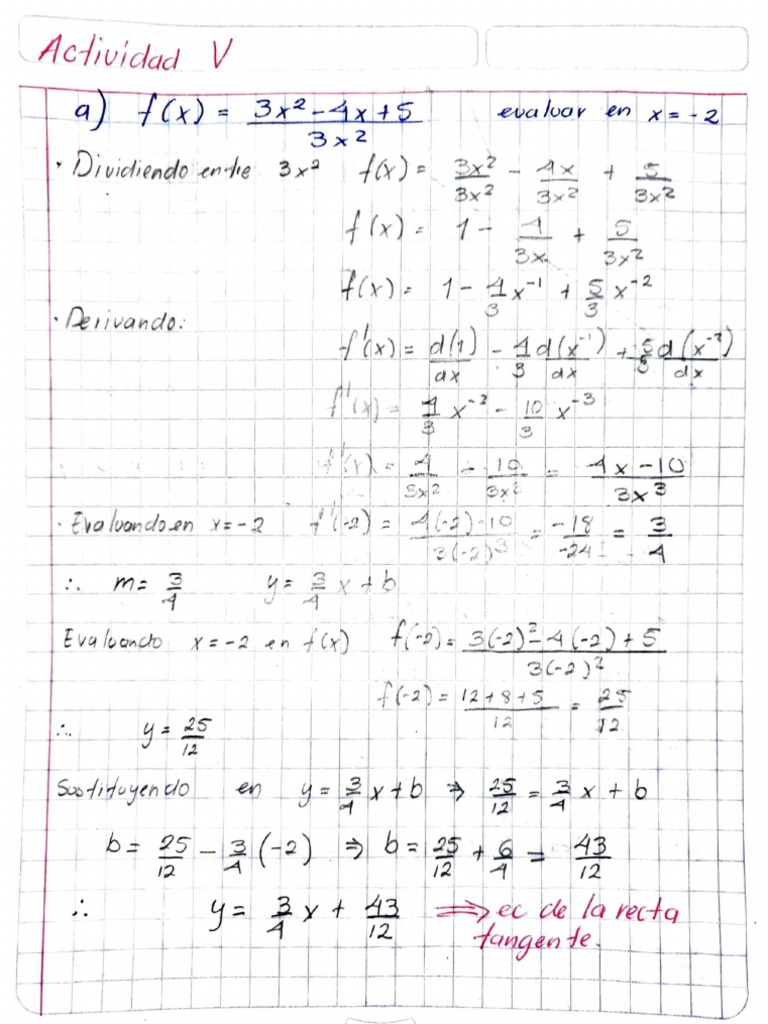 Actividad V
a) f(x) = (3x² - 4x + 5)/(3x²) evaluar en x = -2
· Dividiendo entre 3x² f(x) = 3x²/3x² - 4x/3x² + 5/3x²
f(x) = 1 - 4/3x + 5/3x²
f(x) = 1 - 4/3 x⁻¹ + 5/3 x⁻²
· Derivando:
f'(x) = d(1)/dx - 4/3 d(x⁻¹)/dx + 5/3 d(x⁻²)/dx
f'(x) = 4/3 x⁻² - 10/3 x⁻³
f'(x) = 4/3x² - 10/3x³ = (4x - 10)/3x³
· Evaluando en x = -2 f'(-2) = (4(-2) - 10)/3(-2)³ = -18/-24 = 3/4
∴ m = 3/4 y = 3/4 x + b
Evaluando x = -2 en f(x) f(-2) = (3(-2)² - 4(-2) + 5)/3(-2)²
f(-2) = (12 + 8 + 5)/12 = 25/12
∴ y = 25/12
Sustituyendo en y = 3/4 x + b ⇒ 25/12 = 3/4 x + b
b = 25/12 - 3/4 (-2) ⇒ b = 25/12 + 6/4 = 43/12
∴ y = 3/4 x + 43/12 ⇒ ec de la recta
tangente.